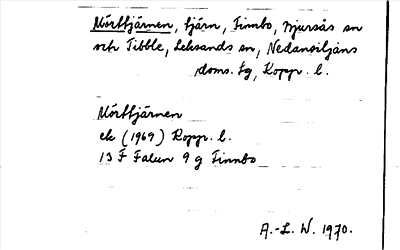 Mörttjärnen, tjärn, Finnbo, Bjursås sn
och Tibble, Leksands sn, Nedansiljans
doms. tg, Kopp. l.
Mörttjärnen
ek (1969) Kopp. l.
13 F Falun 9 g Finnbo
A.-L. W. 1970.